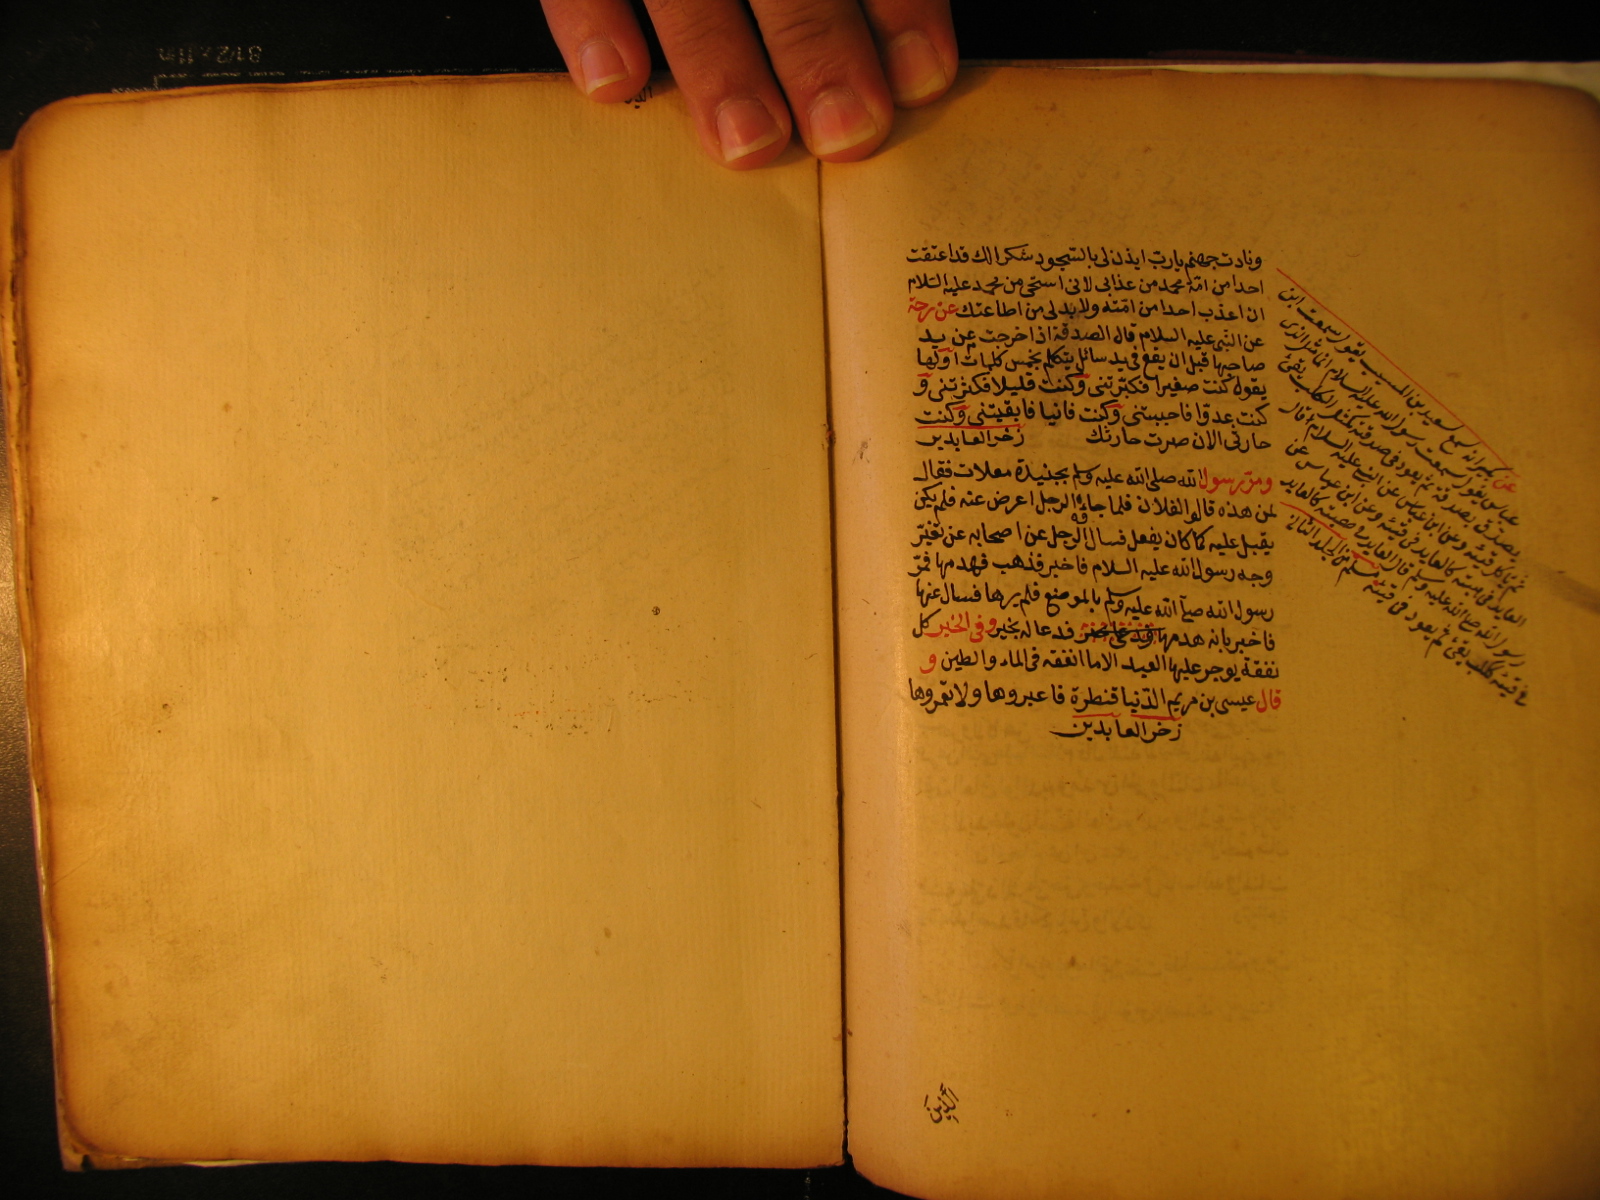 ونادت جهنم يارب ايذن لى بالسجود شكرا لك قد اعتقت
احدا من امة محمد من عذابى لانى استحى من محمد عليه السلام
ان اعذب احدا من امته ولا بد لى من اطاعتك عن
عن النبى عليه السلام قال الصدقة اذا خرجت عن يد
صاحبها قبل ان يقع فى يد سائل يتكلم بخمس كلمات اولها
يقول كنت صغيرا فكبرتنى وكنت قليلا فكثرتنى و
كنت عدوا فاحببتنى وكنت فانيا فابقيتنى وكنت
حارثى الان صرت حارثك زخر العابدين
ومر رسول الله صلى الله عليه وسلم فقال
لمن هذه قالوا لفلان فلما جاءه الرجل اعرض عنه فلم يكن
يقبل عليه كما كان يفعل فسال الرجل عن اصحابه عن تغير
وجه رسول الله عليه السلام فاخبر فذهب فهدمها فمر
رسول الله صلى الله عليه وسلم بالموضع فلم يرها فسال عنها
فاخبر بانه هدمها فدعا له بخير وفى الخبر كل
نفقة يوجر عليها العبد الا ما انفقه فى الماء والطين و
قال عيسى بن مريم الدنيا قنطرة فاعبروها ولا تعمروها
زخر العابدين
عن بكير انه سمع سعيد بن المسيب يقول سمعت ابن
عباس يقول سمعت رسول الله عليه السلام انما مثل الذى
يصدق بصدقة ثم يعود فى صدقته كمثل الكلب يقئ
ثم ياكل قيئه وعن ابن عباس عن النبى عليه السلام قال
العايد فى هبته كالعايد فى قيئه وعن ابن عباس عن
رسول الله صلى الله عليه وسلم قال العايد فى هبته كالعايد
فى قيئه كالكلب يقئ ثم يعود فى قيئه مسلم من الجلد الثانى